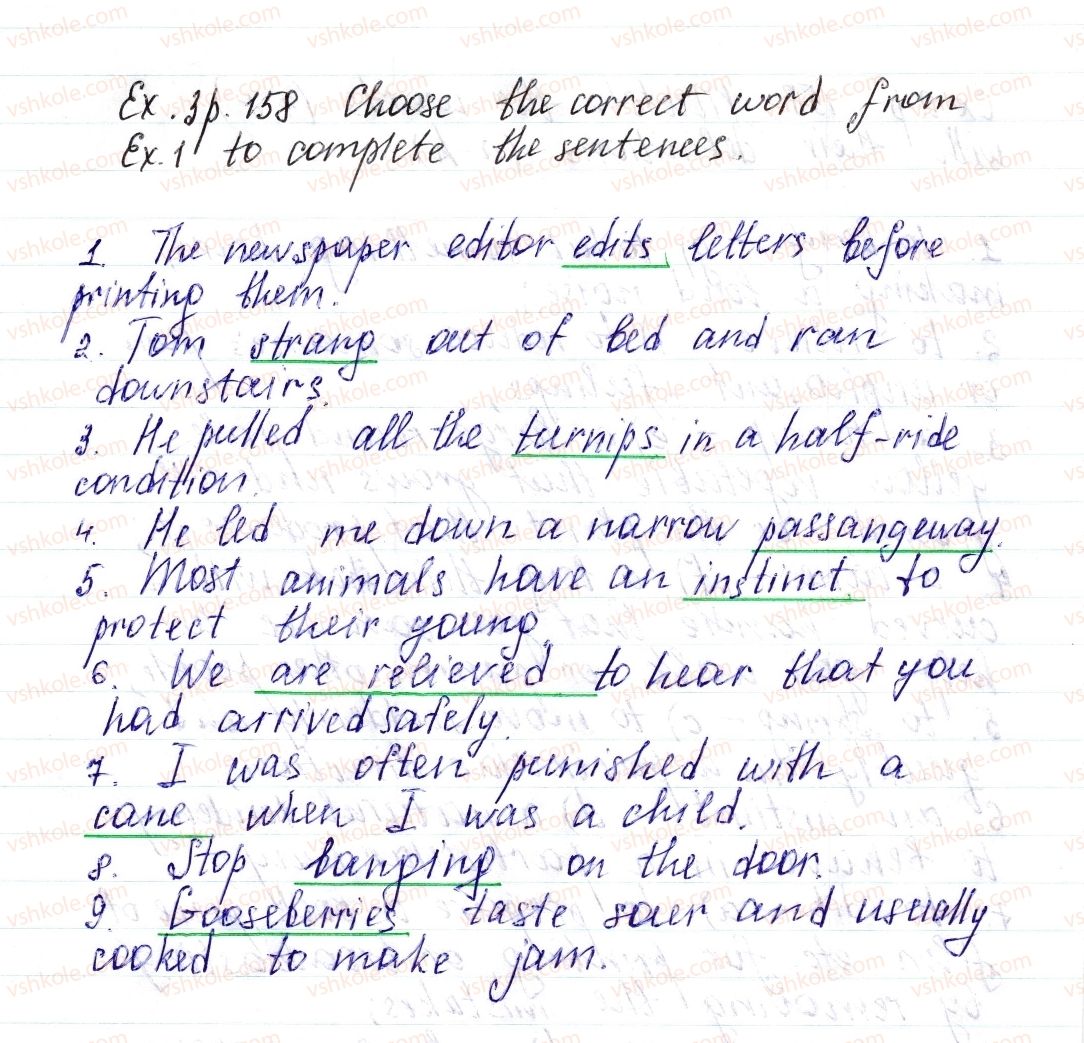 Ex. 3 p. 158 Choose the correct word from
Ex. 1 to complete the sentences.
1. The newspaper editor edits letters before
printing them.
2. Tom strang out of bed and ran
downstairs.
3. He pulled all the turnips in a half-ride
condition.
4. He led me down a narrow passangeway.
5. Most animals have an instinct to
protect their young.
6. We are relieved to hear that you
had arrived safely.
7. I was often punished with a
cane when I was a child.
8. Stop banging on the door.
9. Gooseberries taste sour and usually
cooked to make jam.